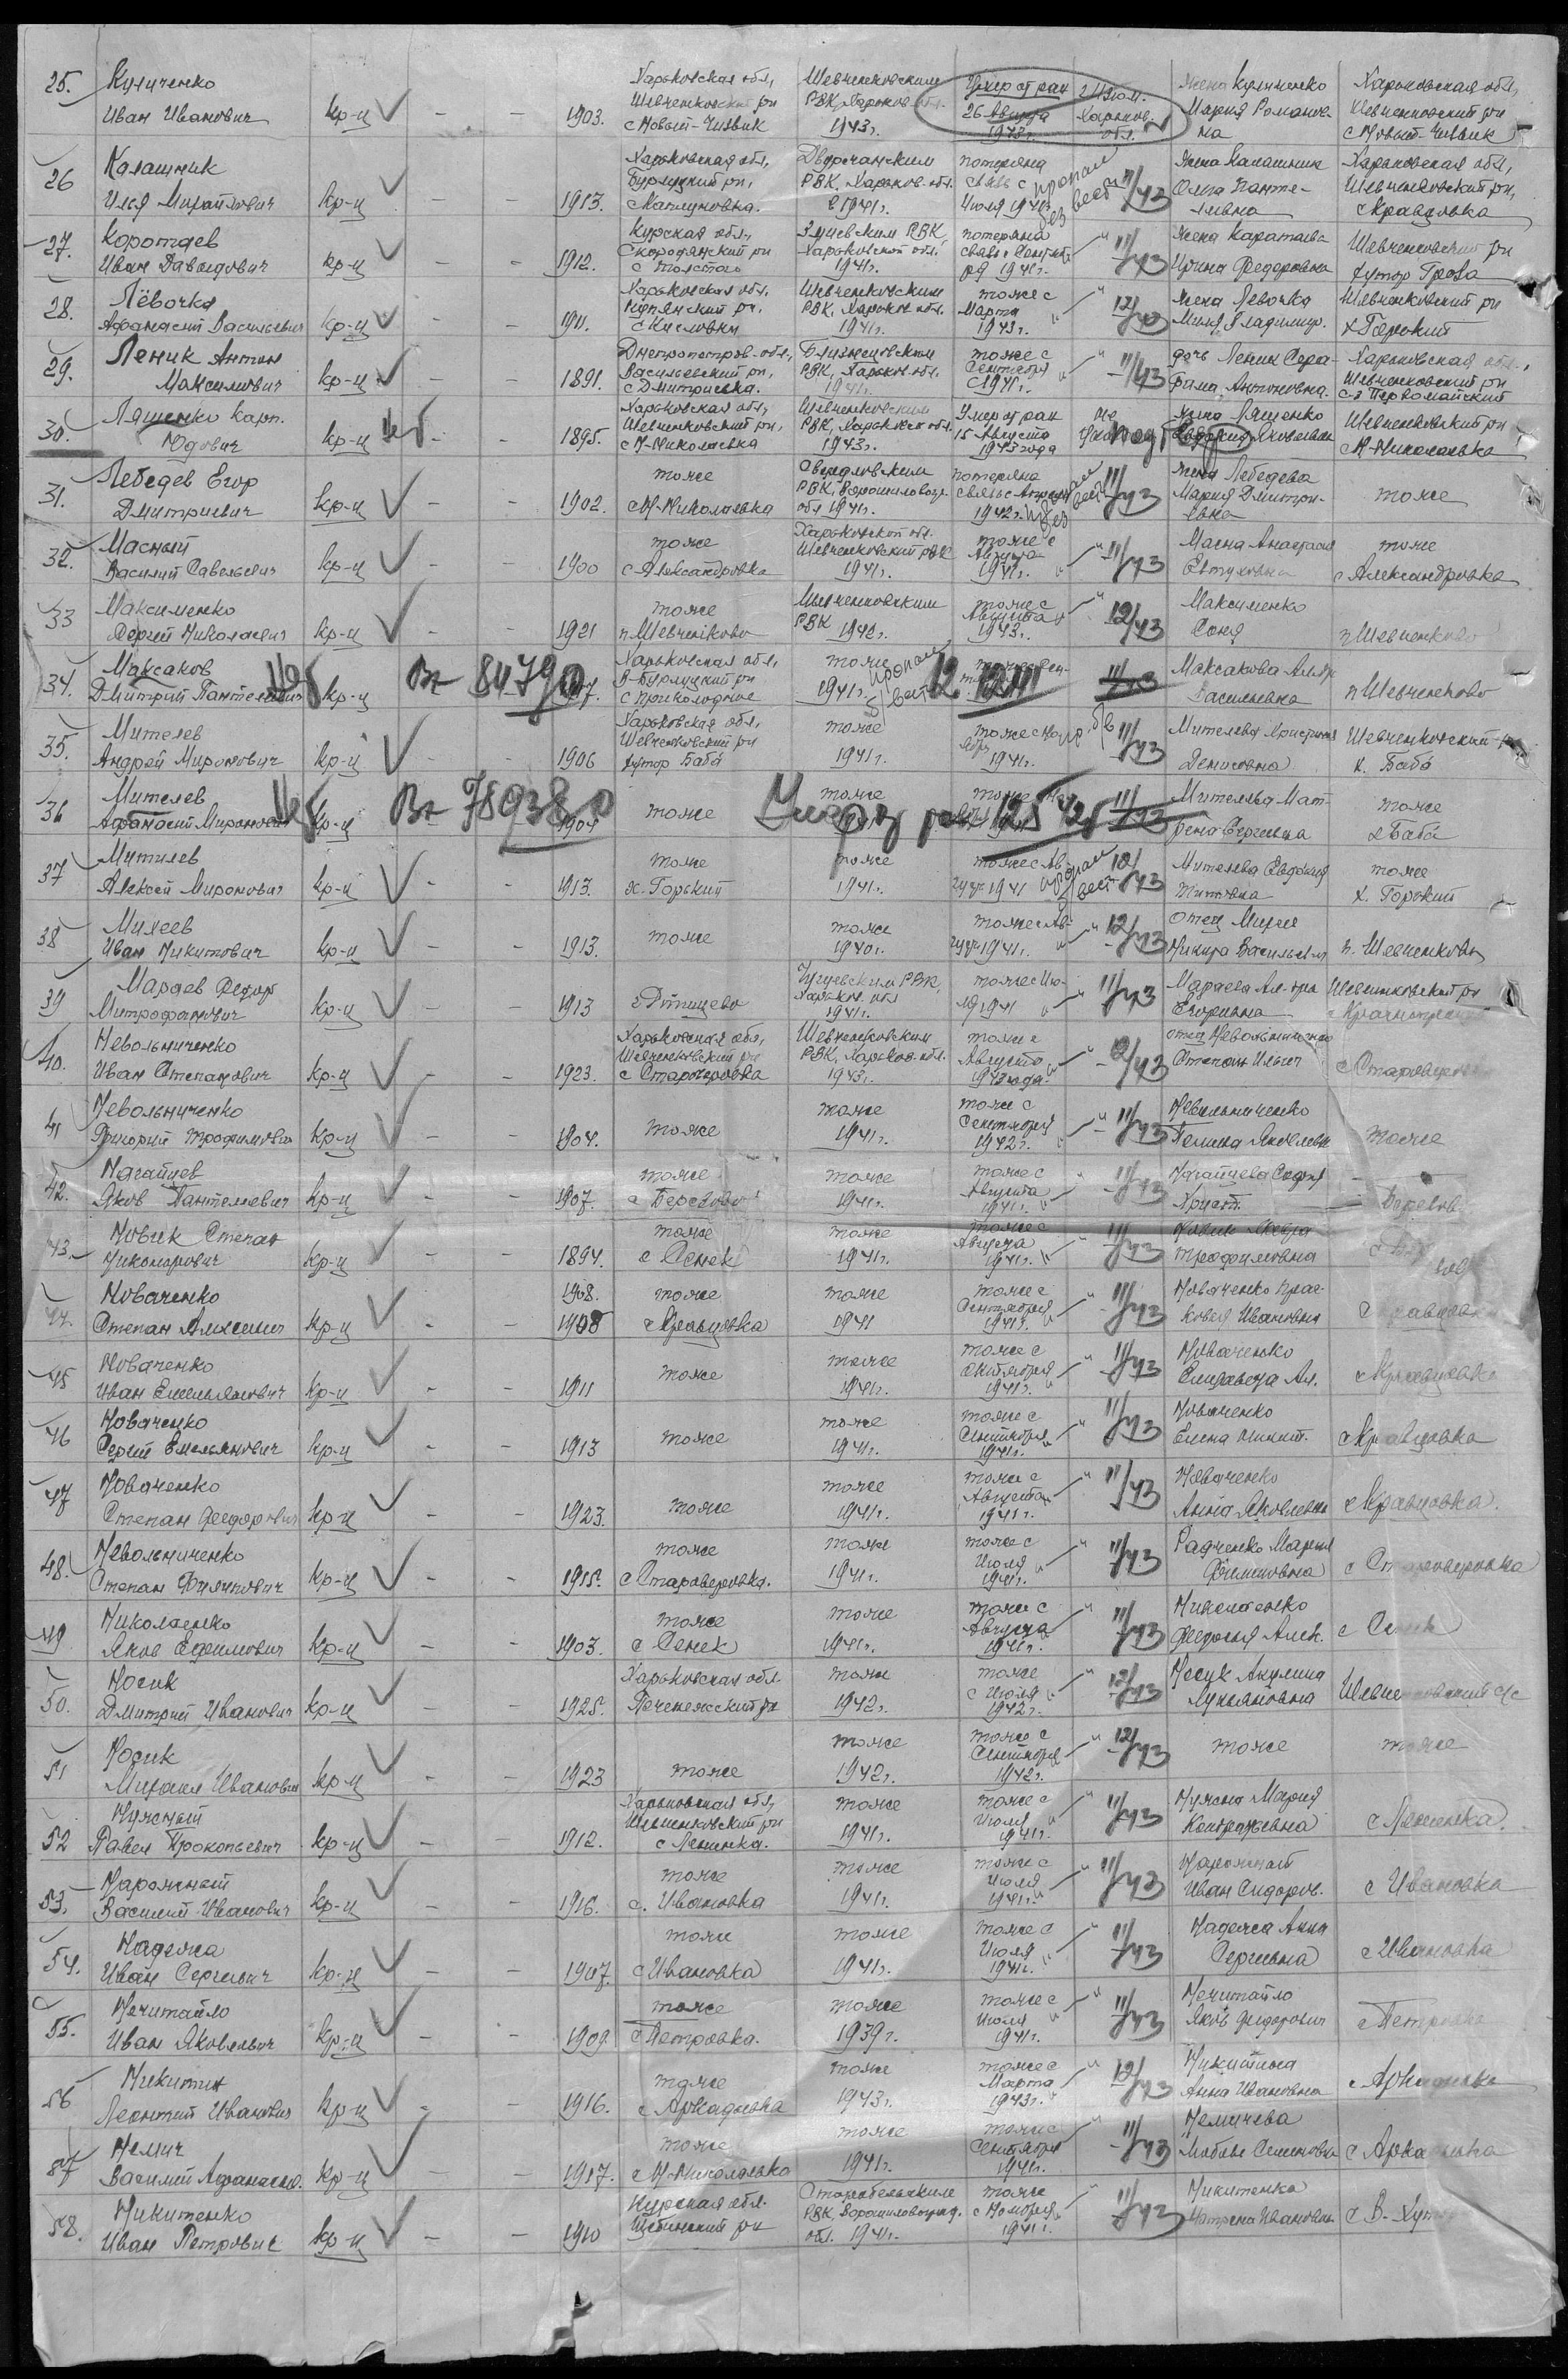 25. Куличенко
Иван Иванович
кр-ц
1903.
Харьковская обл,
Шевченковский рн
с Новый-Чизвик
Шевченковским
РВК, Харьков. обл.
1943г.
Умер от ран
26 Августа
1943г.
г Изюм.
Харьков.
обл.
Жена Куличенко
Мария Романов-
на
Харьковская обл,
Шевченковский рн
с Новый-Чизвик
26 Калашник
Илья Михайлович
кр-ц
1913.
Харьковская обл,
Бурлуцкий рн,
Двуречанским
РВК, Харьков. обл.
в 1941г.
потеряна
связь с
Июля 1941г.
пропал
без вести
11/43
Жена Калашник
Ольга Панте-
леевна
Харьковская обл,
Шевченковский рн,
с Кравцовка
27. Коротаев
Иван Давыдович
кр-ц
1912.
Курская обл,
Скороднянский рн
с Толстое
Змиевским РВК
Харьковской обл.
1941г.
потеряна
связь с Сентяб-
ря 1941г.
11/43
Жена Каратаева
Ирина Федоровна
Шевченковский рн
хутор Грава
28. Лёвочка
Афанасий Васильевич
кр-ц
1911.
Харьковская обл,
Купянский рн,
с Кисловки
Шевченковским
РВК, Харьков. обл.
1941г.
тоже с
Марта
1943г.
12/43
Жена Левочка
Мария Владимир.
Шевченковский рн
х Горький
29. Леник Антон
Максимович
кр-ц
1891.
Днепропетров. обл,
Васильевский рн,
с Дмитриевка.
Близнецовским
РВК, Харьков. обл.
1941г.
тоже с
Сентября
1941г.
11/43
дочь Леник Сера-
фима Антоновна.
Харьковская обл.,
Шевченковский рн
с-з Первомайский
30. Ляшенко Карп.
Юдович
кр-ц
1895.
Харьковская обл,
Шевченковский рн,
с Н-Николаевка
Шевченковским
РВК, Харьков. обл.
1943г.
Умер от ран
15 Августа
1943 года
Жена Лященко
Евдокия Яковлевна
Шевченковский рн
с Н-Николаевка
31. Лебедев Егор
Дмитриевич
кр-ц
1902.
тоже
с Н-Николаевка
Свердловским
РВК, Ворошиловогр.
обл 1941г.
потеряна
связь с Апреля
1942г.
пропал
без вести
11/43
Жена Лебедева
Мария Дмитри-
евна
тоже
32. Масный
Василий Савельевич
кр-ц
1900
тоже
с Александровка
Харьковской обл.
Шевченковский РВК
1941г.
тоже с
Августа
1941г.
11/43
Масна Анастасия
Евтуховна
тоже
с Александровка
33 Максименко
Сергей Николаевич
кр-ц
1921
тоже
п Шевченково
Шевченковским
РВК
1940г.
тоже с
Августа
1943г.
12/43
Максименко
Соня
п Шевченково
34. Максаков
Дмитрий Пантелеевич
кр-ц
Вх 84790
Харьковская обл,
В-Бурлуцкий рн
с Приколодное
тоже
1941г.
пропал
б/вест
12 1941
11/43
Максакова Алекр
Васильевна
п Шевченково
35. Мителев
Андрей Миронович
кр-ц
1906
Харьковская обл,
Шевченковский рн
хутор Баба
тоже
1941г.
тоже с Нояб
1941г.
11/43
Мителева Христиния
Денисовна
Шевченковский рн
х. Баба
36 Мителев
Афанасий Миронович
кр-ц
Вх 78938
1904
тоже
тоже
Умер от ран 12 5 42г
11/43
Мителева Мат-
рена Сергеевна
тоже
х Баба
37 Мителев
Алексей Миронович
кр-ц
1913.
тоже
х. Горький
тоже
1941г.
тоже с Ав-
густ 1941
пропал
б/вест
12/43
Мителева Евдокия
Титовна
тоже
х. Горький
38 Михеев
Иван Никитович
кр-ц
1913.
тоже
тоже
1940г.
тоже с Ав-
густ 1941г.
12/43
отец Михеев
Никита Васильевич
п. Шевченково
39 Мараев Федор
Митрофанович
кр-ц
1913
с Птищево
Чугуевским РВК,
Харьков. обл
1941г.
тоже с Ию-
ля 1941
11/43
Мараева Ал-дра
Егоровна
Шевченковский рн
40. Невольниченко
Иван Степанович
кр-ц
1923.
Харьковская обл,
Шевченковский рн
с Староверовка
Шевченковским
РВК, Харьков. обл.
1943г.
тоже с
Августа
1943 года
12/43
отец Невольниченко
Степан Ильич
с Староверовка
41 Невольниченко
Григорий Трофимович
кр-ц
1904.
тоже
тоже
1941г.
тоже с
Сентября
1942г.
11/43
Невольниченко
Пелагея Яковлевна
тоже
42. Нагайцев
Яков Пантелеевич
кр-ц
1907.
тоже
с Березово
тоже
1941г.
тоже с
Августа
1941г.
11/43
Нагайцева София
Христ.
43. Новик Степан
Никонорович
кр-ц
1894.
тоже
с Сенек
тоже
1941г.
тоже с
Августа
1941г.
11/43
Новик
Трофимовна
44. Новаченко
Степан Алексеевич
кр-ц
1908.
1908
тоже
с Кравцовка
тоже
1941
тоже с
Сентября
1941г.
11/43
Новаченко Прас-
ковия Ивановна
с Кравцовка
45 Новаченко
Иван Емельянович
кр-ц
1911
тоже
тоже
1941г.
тоже с
Октября
1941г.
11/43
Новаченко
Елизавета Ал.
с Кравцовка
46 Новаченко
Сергей Емельянович
кр-ц
1913
тоже
тоже
1941г.
тоже с
Сентября
1941г.
11/43
Новаченко
Елена Никит.
с Кравцовка
47 Новаченко
Степан Федорович
кр-ц
1923.
тоже
тоже
1941г.
тоже с
Августа
1941г.
11/43
Новаченко
Анна Яковлевна
с Кравцовка.
48. Невольниченко
Степан Филипович
кр-ц
1915.
тоже
с Староверовка.
тоже
1941г.
тоже с
Июля
1941г.
11/43
Радченко Мария
Филиповна
с Староверовка
49 Николаенко
Яков Ефимович
кр-ц
1903.
тоже
с Сенек
тоже
1941г.
тоже с
Августа
1941г.
11/43
Николаенко
Федосия Алек.
с Сенек
50. Носик
Дмитрий Иванович
кр-ц
1925.
Харьковская обл
Печенежский рн
тоже
1942г.
тоже
с Июля
1942г.
12/43
Носик Акулина
Лукьяновна
Шевченковский с/с
51 Носик
Михаил Иванович
кр-ц
1923
тоже
тоже
1942г.
тоже с
Сентября
1942г.
12/43
тоже
тоже
52 Нужный
Павел Прокопьевич
кр-ц
1912.
Харьковская обл,
Шевченковский рн
с Ленинка.
тоже
1941г.
тоже с
Июля
1941г.
11/43
Нужна Мария
Кондратьевна
с Ленинка.
53. Нарожный
Василий Иванович
кр-ц
1916.
тоже
с. Ивановка
тоже
1941г.
тоже с
Июля
1941г.
11/43
Нарожный
Иван Сидоров.
с Ивановка
54. Надежа
Иван Сергеевич
кр-ц
1907.
тоже
с Ивановка
тоже
1941г.
тоже с
Июля
1941г.
11/43
Надежа Анна
Сергеевна
с Ивановка
55. Нечитайло
Иван Яковлевич
кр-ц
1909
тоже
с Петровка.
тоже
1939г.
тоже с
Июля
1941г.
11/43
Нечитайло
Яков Федорович
с Петровка
56 Никитин
Леонтий Иванович
кр-ц
1916.
тоже
с Аркадиевка
тоже
1943г.
тоже с
Марта
1943г.
12/43
Никитина
Анна Ивановна
с Аркадиевка
57 Немич
Василий Афанасьев.
кр-ц
1917.
тоже
с Н-Николаевка
тоже
1941г.
тоже с
Сентября
1941г.
11/43
Немичева
Любовь Семеновна
с Аркадиевка
58. Никитенко
Иван Петрович
кр-ц
1910
Курская обл.
Старобельским
РВК, Ворошиловград.
обл. 1941г.
тоже
с Ноября
1941г.
11/43
Никитенко
Матрена Ивановна
с В-Хутор